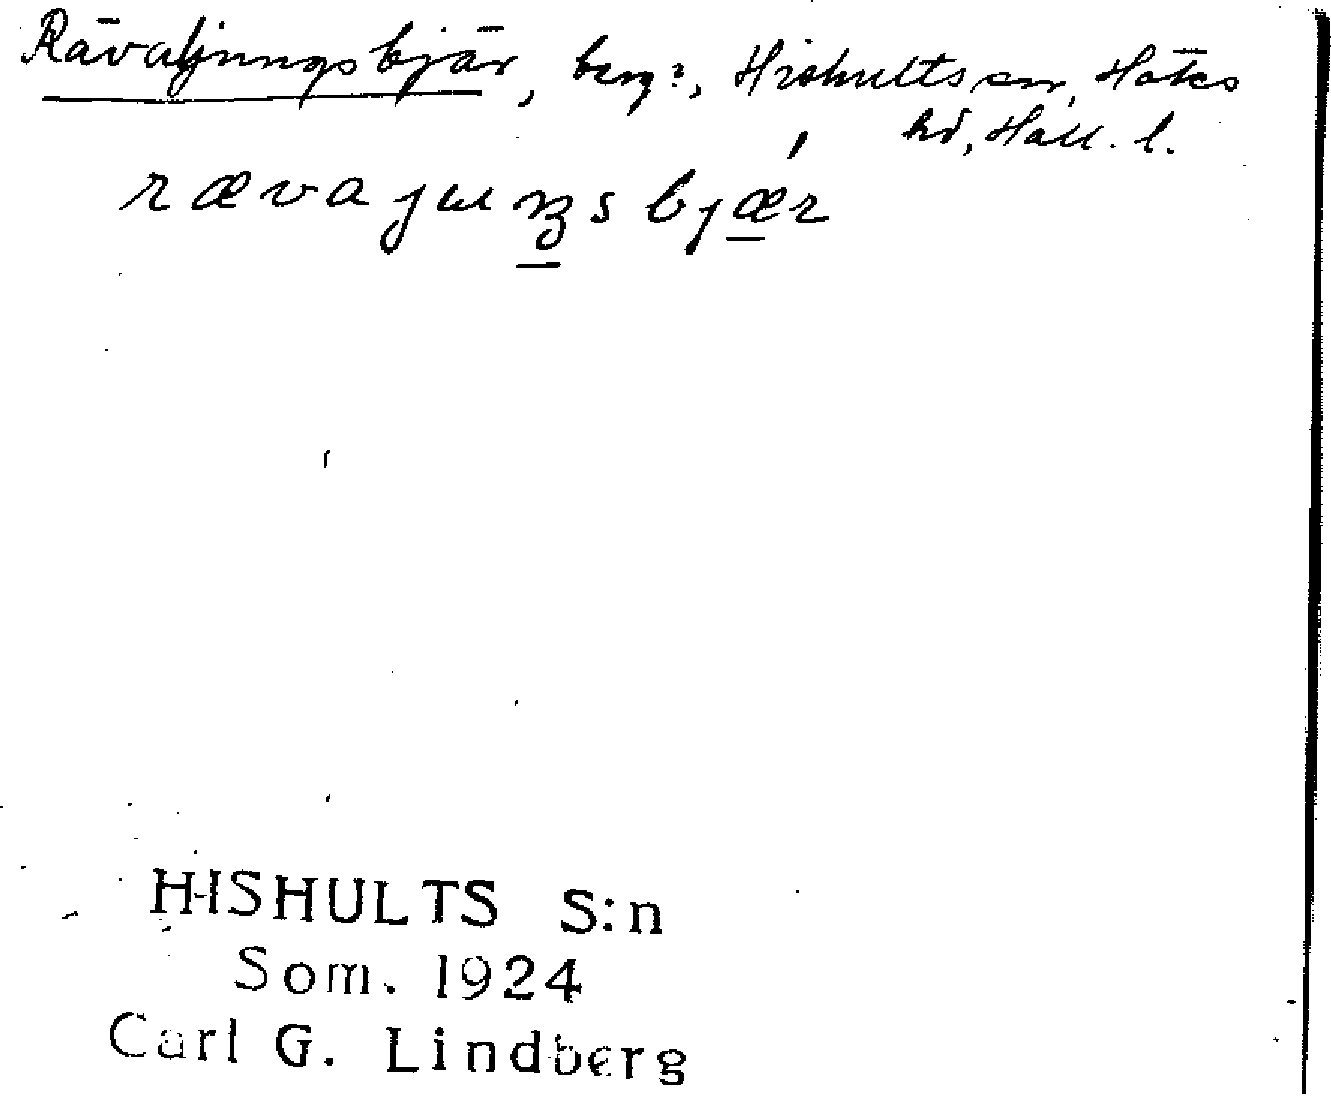 Rävaljungsbjär, berg?, Hishults sn, Höks
hd, Hall. l.
rævajuŋsbjær
HISHULTS S:n
Som. 1924
Carl G. Lindberg